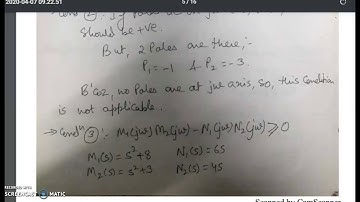 2020-04-07 09:22:51
5/16
should be +ve.
But, 2 Poles are there;-
P₁ = -1 & P₂ = -3.
B'coz, no Poles are at jω axis, So, this Condition
is not applicable.
→ Condⁿ ③ :- M₁(jω) M₂(jω) - N₁(jω) N₂(jω) ≥ 0
M₁(s) = s² + 8 N₁(s) = 6s
M₂(s) = s² + 3 N₂(s) = 4s
RECORDED WITH
SCREENCAST MATIC